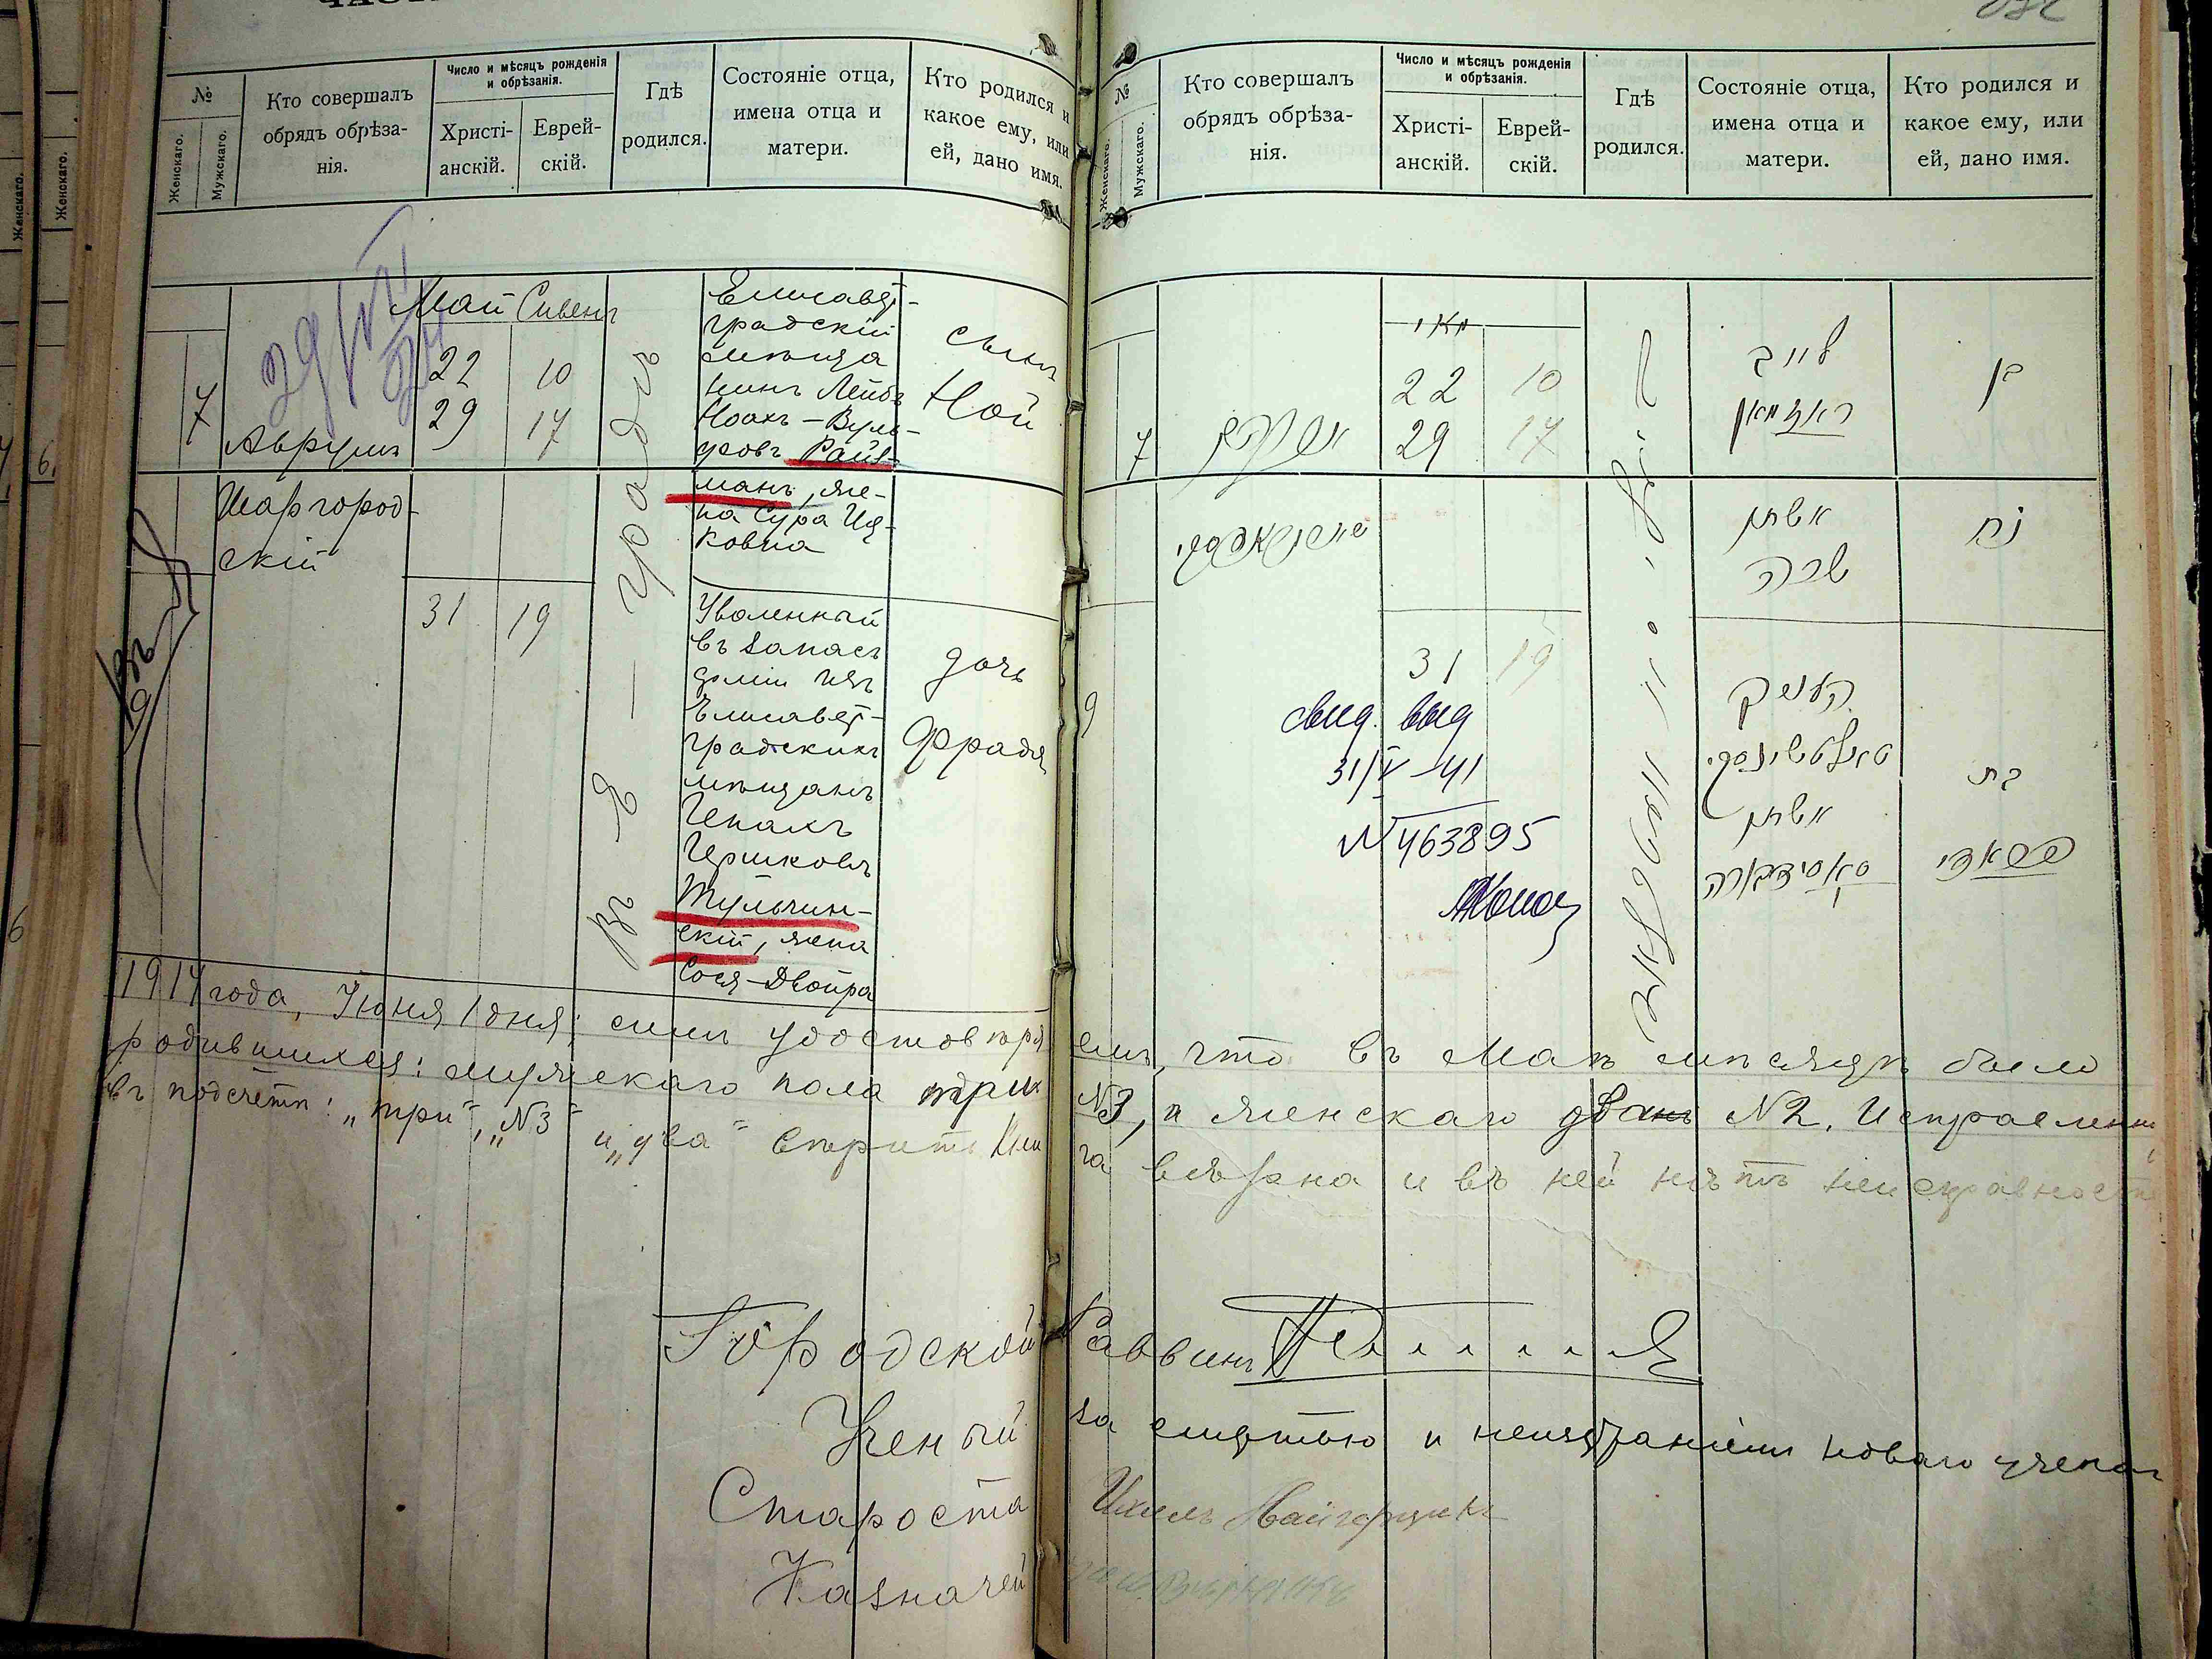 №
Женскаго.
Мужскаго.
Кто совершалъ
обрядъ обрѣза-
нія.
Число и мѣсяцъ рожденія
и обрѣзанія.
Христі-
анскій.
Еврей-
скій.
Гдѣ
родился.
Состояніе отца,
имена отца и
матери.
Кто родился и
какое ему, или
ей, дано имя.
7
Аврумъ
Шаргород-
скій
Май Сивенъ
22 10
29 17
Въ
градѣ
Елисавет-
градскій
мѣща
нинъ Лейбъ
Ноахъ-Вуль-
фовъ Райз-
манъ, же-
на Сура Иц-
ковна
сынъ
Ной
31 19
Уволенный
въ запасъ
арміи изъ
Елисавет-
градскихъ
мѣщанъ
Генахъ
Гершковъ
Тульчин-
скій, жена
Сося-Двойра
дочь
Фрадя
№
Женскаго.
Мужскаго.
Кто совершалъ
обрядъ обрѣза-
нія.
Число и мѣсяцъ рожденія
и обрѣзанія.
Христі-
анскій.
Еврей-
скій.
Гдѣ
родился.
Состояніе отца,
имена отца и
матери.
Кто родился и
какое ему, или
ей, дано имя.
7
מאי
22 10
29 17
לייב
ראיזמאן
אשתו
שרה
בן
נח
9
31 19
свид. выд
31/V-41
N 463895
העניק
טולטשינסקי
אשתו
סאסידבורה
בת
פראדי
1914 года, Июня 1 дня; симъ удостовѣряемъ, что въ Маѣ мѣсяцѣ было
родившихся: мужескаго пола три №3, и женскаго два №2. Исправленны
въ подсчетѣ: „три“, „№3“ и „два“ вѣрить. Книга вѣрна и въ ней нѣтъ неисправностей
Городской Раввинъ
Ученый за смертью и неизбраніемъ новаго ученаго
Староста
Казначей